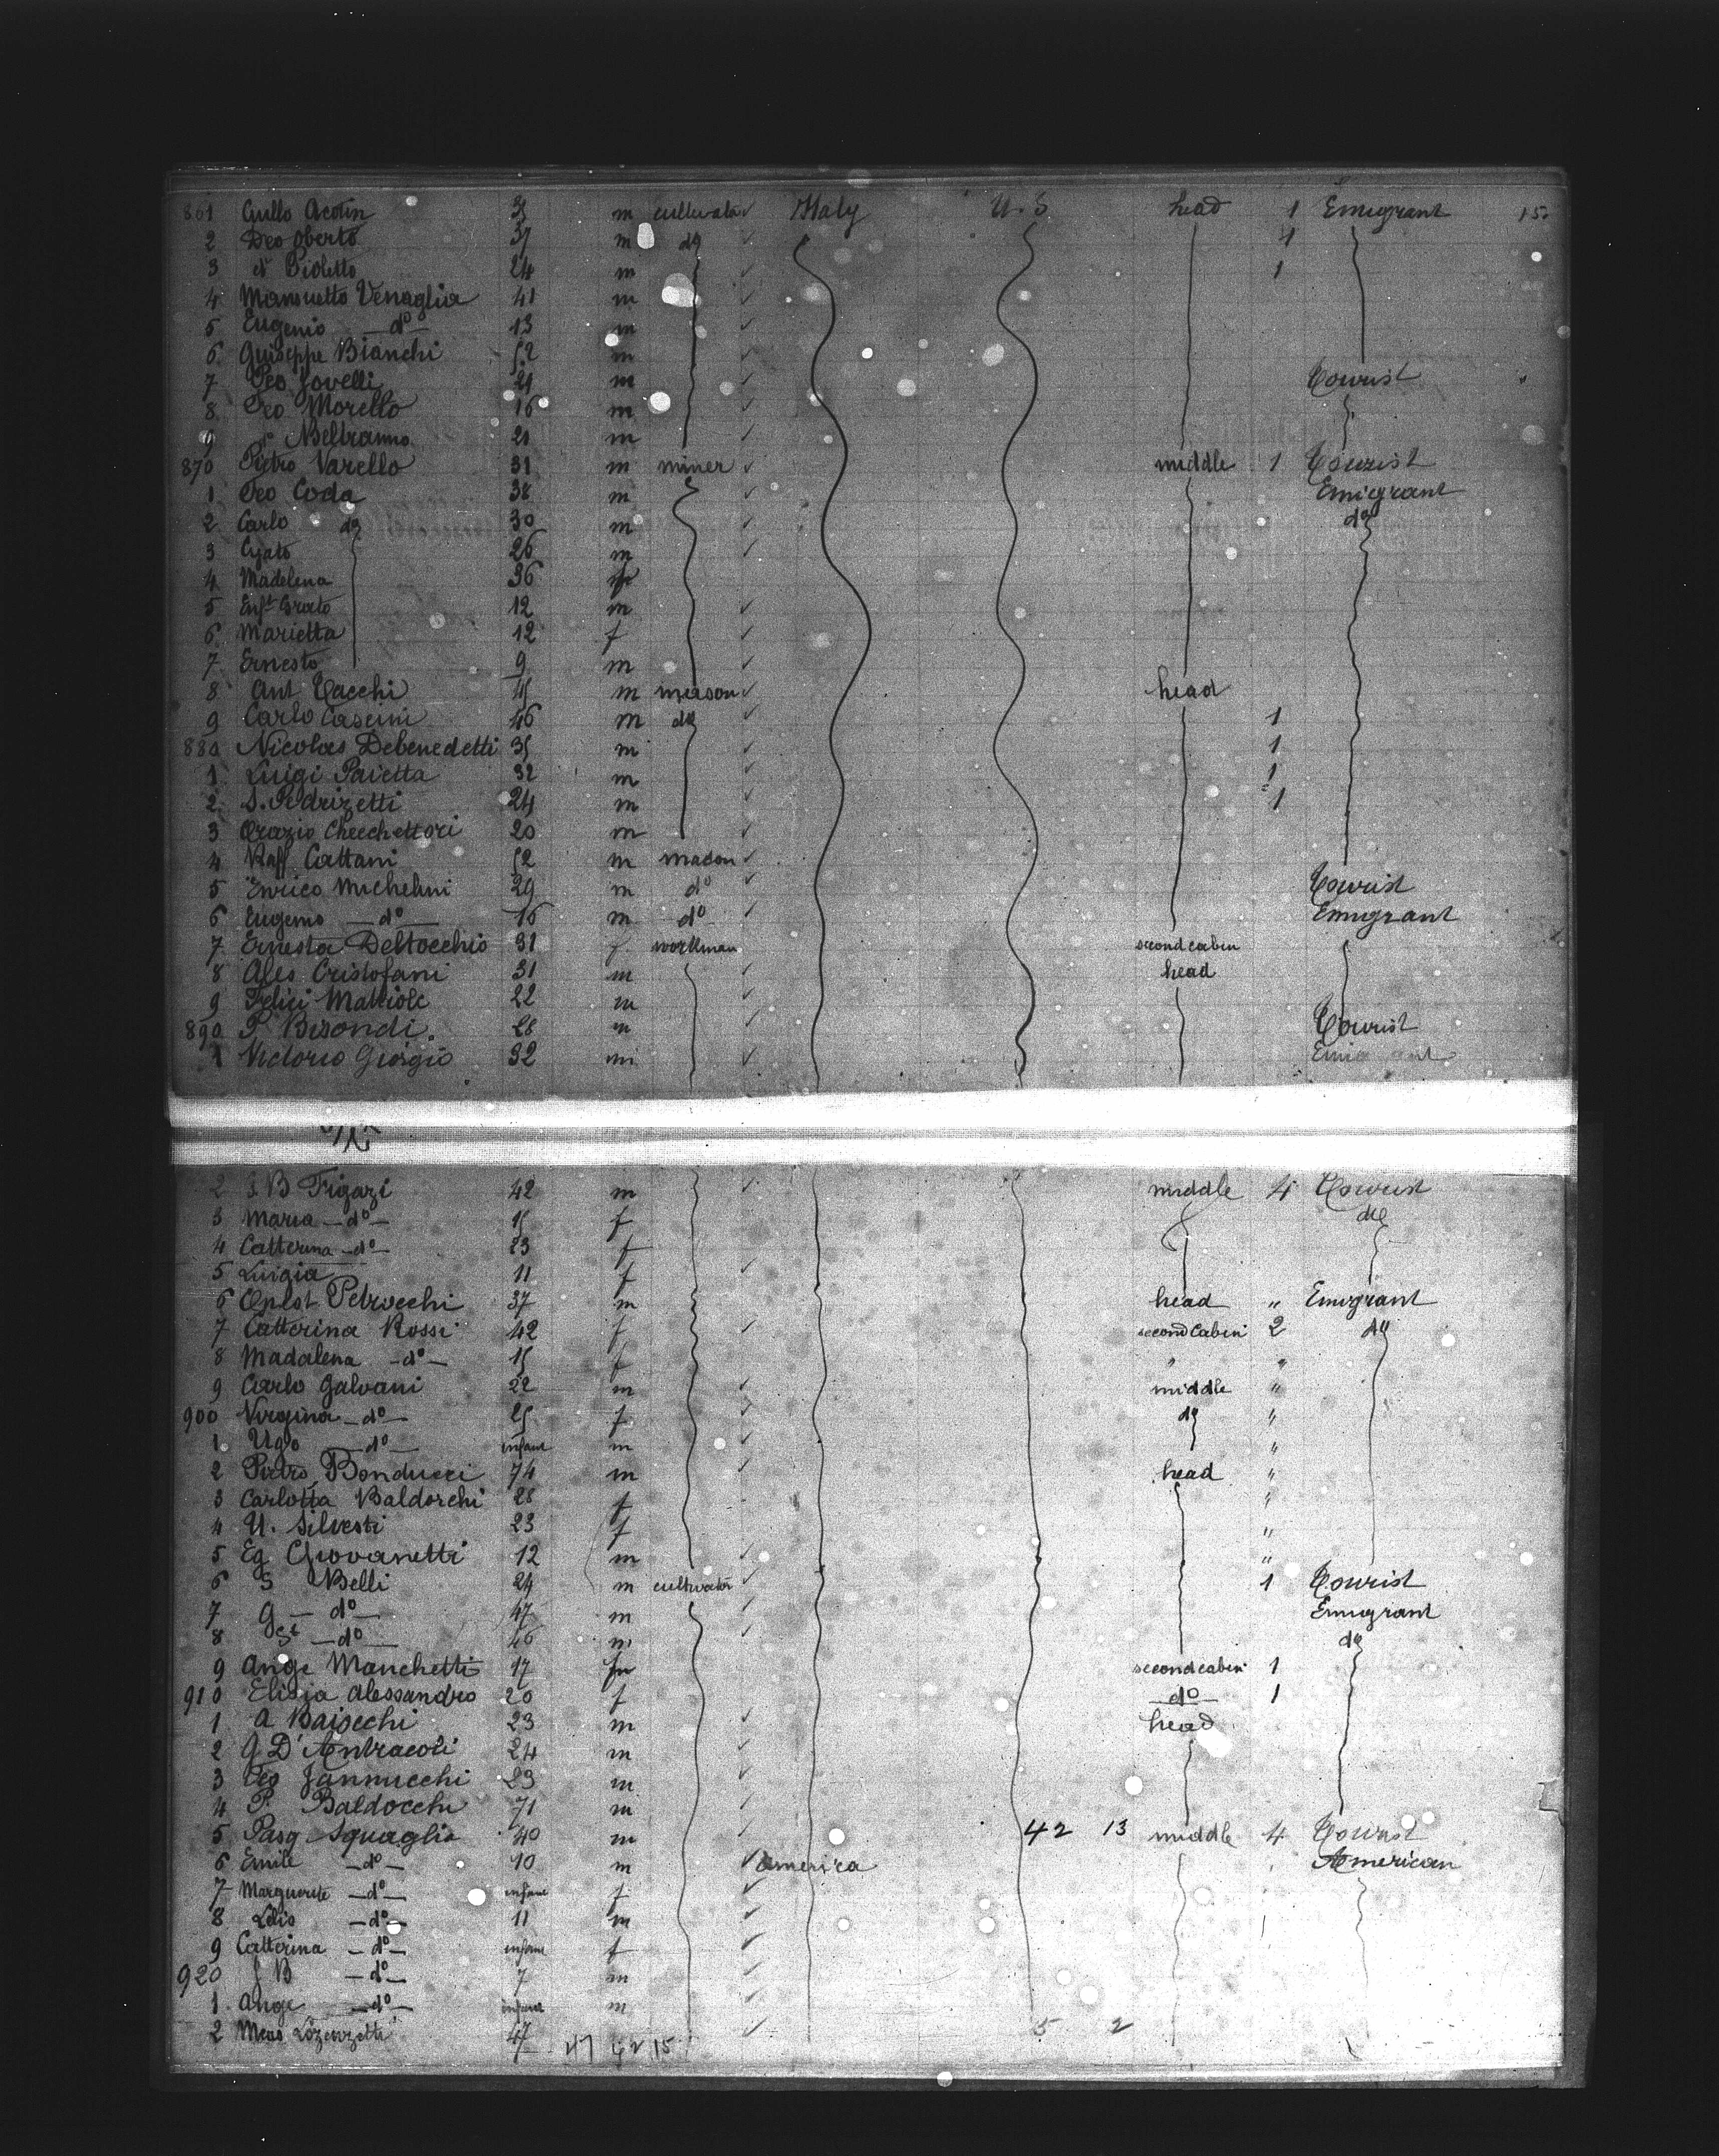 861 Gullo Acotin m cultivator Italy U.S head 1 Emigrant 15
2 Deo Oberto 37 m do 1
3 do Violetto 24 m 1
4 Mansuetto Venaglia 41 m
5 Eugenio do 13 m
6 Guiseppe Bianchi 52 m
7 Geo Jovelli 21 m Tourist
8 Geo Morello 16 m
9 do Beltramo 21 m
870 Pietro Varello 31 m miner middle 1 Tourist
1 Geo Coda 38 m Emigrant
2 Carlo do 30 m do
3 26 m
4 Madelena 36 f
5 Enf.t Grato 12 m
6 Marietta 12 f
7 Ernesto 9 m
8 Ant Cacchi 45 m meason head
9 Carlo Cascini 46 m do 1
880 Nicolas Debenedetti 35 m 1
1 Luigi Paietta 32 m 1
2 S. Pedrizetti 24 m 1
3 Orazio Checchettori 20 m
4 Raff Cattani 52 m madon
5 Enrico Michelini 29 m do Tourist
6 Eugenio do 16 m do Emigrant
7 Ernesta Deltocchio 31 f workman second cabin
8 Ales Cristofani 31 m head
9 Felici Mattiole 22 m
890 P Bisondi 28 m Tourist
1 Victorio Giorgio 32 m Emigrant
2 J B Figazi 42 m middle 4 Tourist
3 Maria do 15 f do
4 Catterina do 23 f
5 Luigia 11 f
6 Onest Petrucchi 37 m head " Emigrant
7 Catterina Rossi 42 f second Cabin 2 do
8 Madalena do 15 f " "
9 Carlo Galvani 22 m middle "
900 Virginia do 25 f do "
1 Ugo do infant m "
2 Pietro Bonducci 74 m head "
3 Carlotta Baldorchi 28 f "
4 U. Silvesti 23 f "
5 Eg Giovanetti 12 m "
6 S Belli 24 m cultivator 1 Tourist
7 G do 47 m Emigrant
8 St do 46 m do
9 Ange Manchetti 17 m second cabin 1
910 Elisia Alessandro 20 f do 1
1 A Baisechi 23 m head
2 G D'Antracoli 24 m
3 Geo Jannucchi 23 m
4 P. Baldocchi 71 m
5 Pasq Squaglia 40 m 42 13 middle 4 Tourist
6 Emile do 10 m America American
7 Marguerite do infant f
8 do 11 m
9 Catterina do infant f
920 J B do 7 m
1 Ange do infant m
2 47 5 2
47 42 15